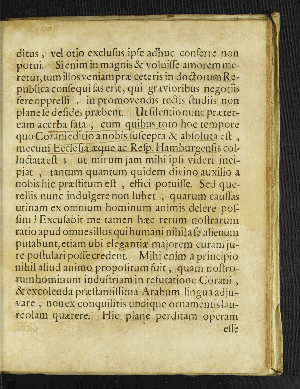 ditus, vel otio exclusus ipse adhuc conferre non
potui. Si enim in magnis & voluisse amorem me-
retur, tum illos veniam præ ceteris in doctorum Re-
publica consequi fas erit, qui gravioribus negotiis
fere oppressi, in promovendis rectis studiis non
plane se desides præbent. Ut silentio nunc præter-
eam acerba fata, cum quibus toto hoc tempore
quo Corani editio a nobis suscepta & absoluta est,
mecum Ecclesia æque ac Resp. Hamburgensis col-
luctata est; ut mirum jam mihi ipsi videri inci-
piat, tantum quantum quidem divino auxilio a
nobis hic præstitum est, effici potuisse. Sed que-
rellis nunc indulgere non lubet, quarum causas
utinam ex omnium hominum animis delere pos-
sim! Excusabit me tamen hæc rerum nostrarum
ratio apud omnes illos qui humani nihil a se alienum
putabunt, etiam ubi elegantiæ majorem curam ju-
re postulari posse credent. Mihi enim a principio
nihil aliud animo propositum fuit, quam nostro-
rum hominum industriam in refutatione Corani,
& excolenda præstantissima Arabum lingua adju-
vare, non ex conquisitis undique ornamentis lau-
reolam quærere. Hic plane perditam operam
esse